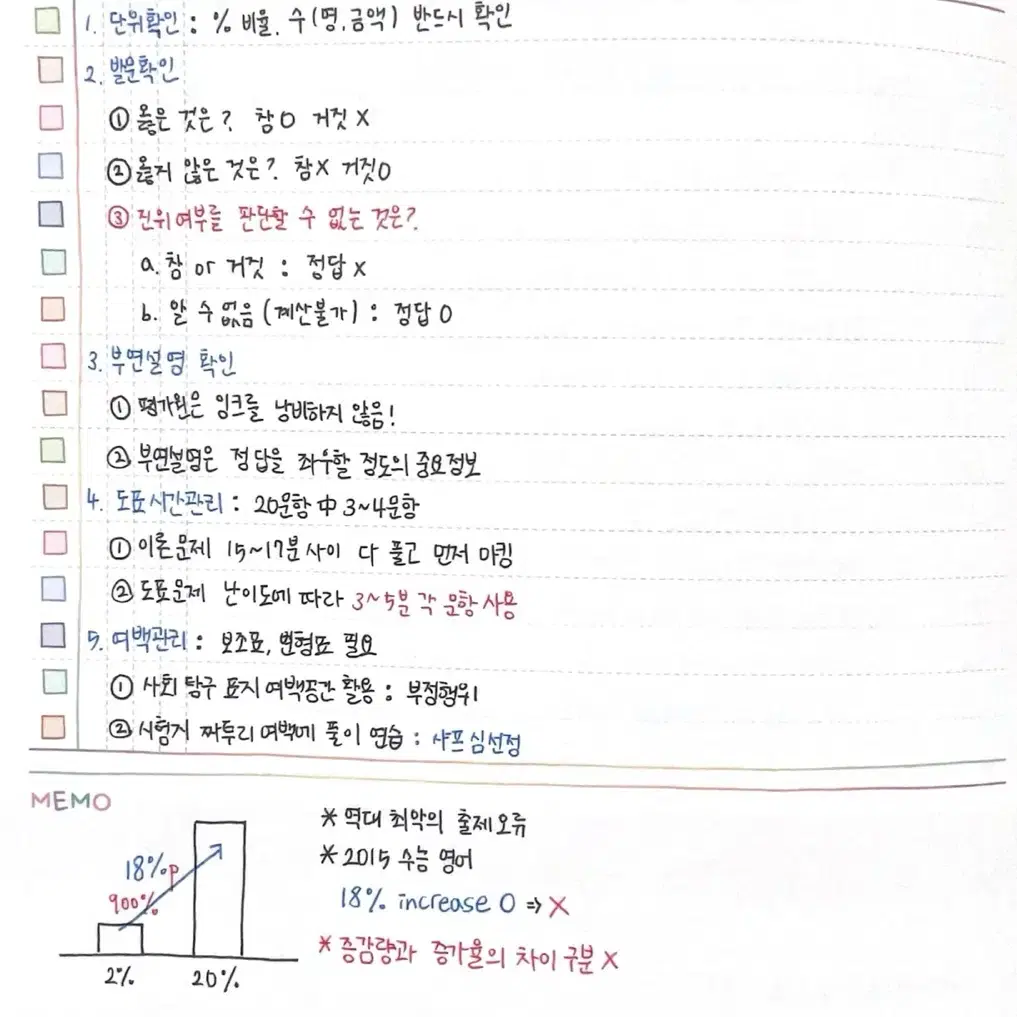 1. 단위확인 : % 비율, 수 (명, 금액) 반드시 확인
2. 발문확인
① 옳은 것은? 참 O 거짓 X
② 옳지 않은 것은? 참X 거짓O
③ 진위여부를 판단할 수 없는 것은?
a. 참 or 거짓 : 정답 X
b. 알 수 없음 (계산불가) : 정답 O
3. 부연설명 확인
① 평가원은 잉크를 낭비하지 않음!
② 부연설명은 정답을 좌우할 정도의 중요정보
4. 도표시간관리 : 20문항 中 3~4문항
① 이론문제 15~17분 사이 다 풀고 먼저 마킹
② 도표문제 난이도에 따라 3~5분 각 문항 사용
5. 여백관리 : 보조표, 변형표 필요
① 사회 탐구 표지 여백공간 활용 : 부정행위
② 시험지 짜투리 여백에 풀이 연습 : 샤프심선정
MEMO
18%p
900%
2%
20%
* 역대 최악의 출제오류
* 2015 수능 영어
18% increase O ⇒ X
* 증감량과 증가율의 차이 구분 X